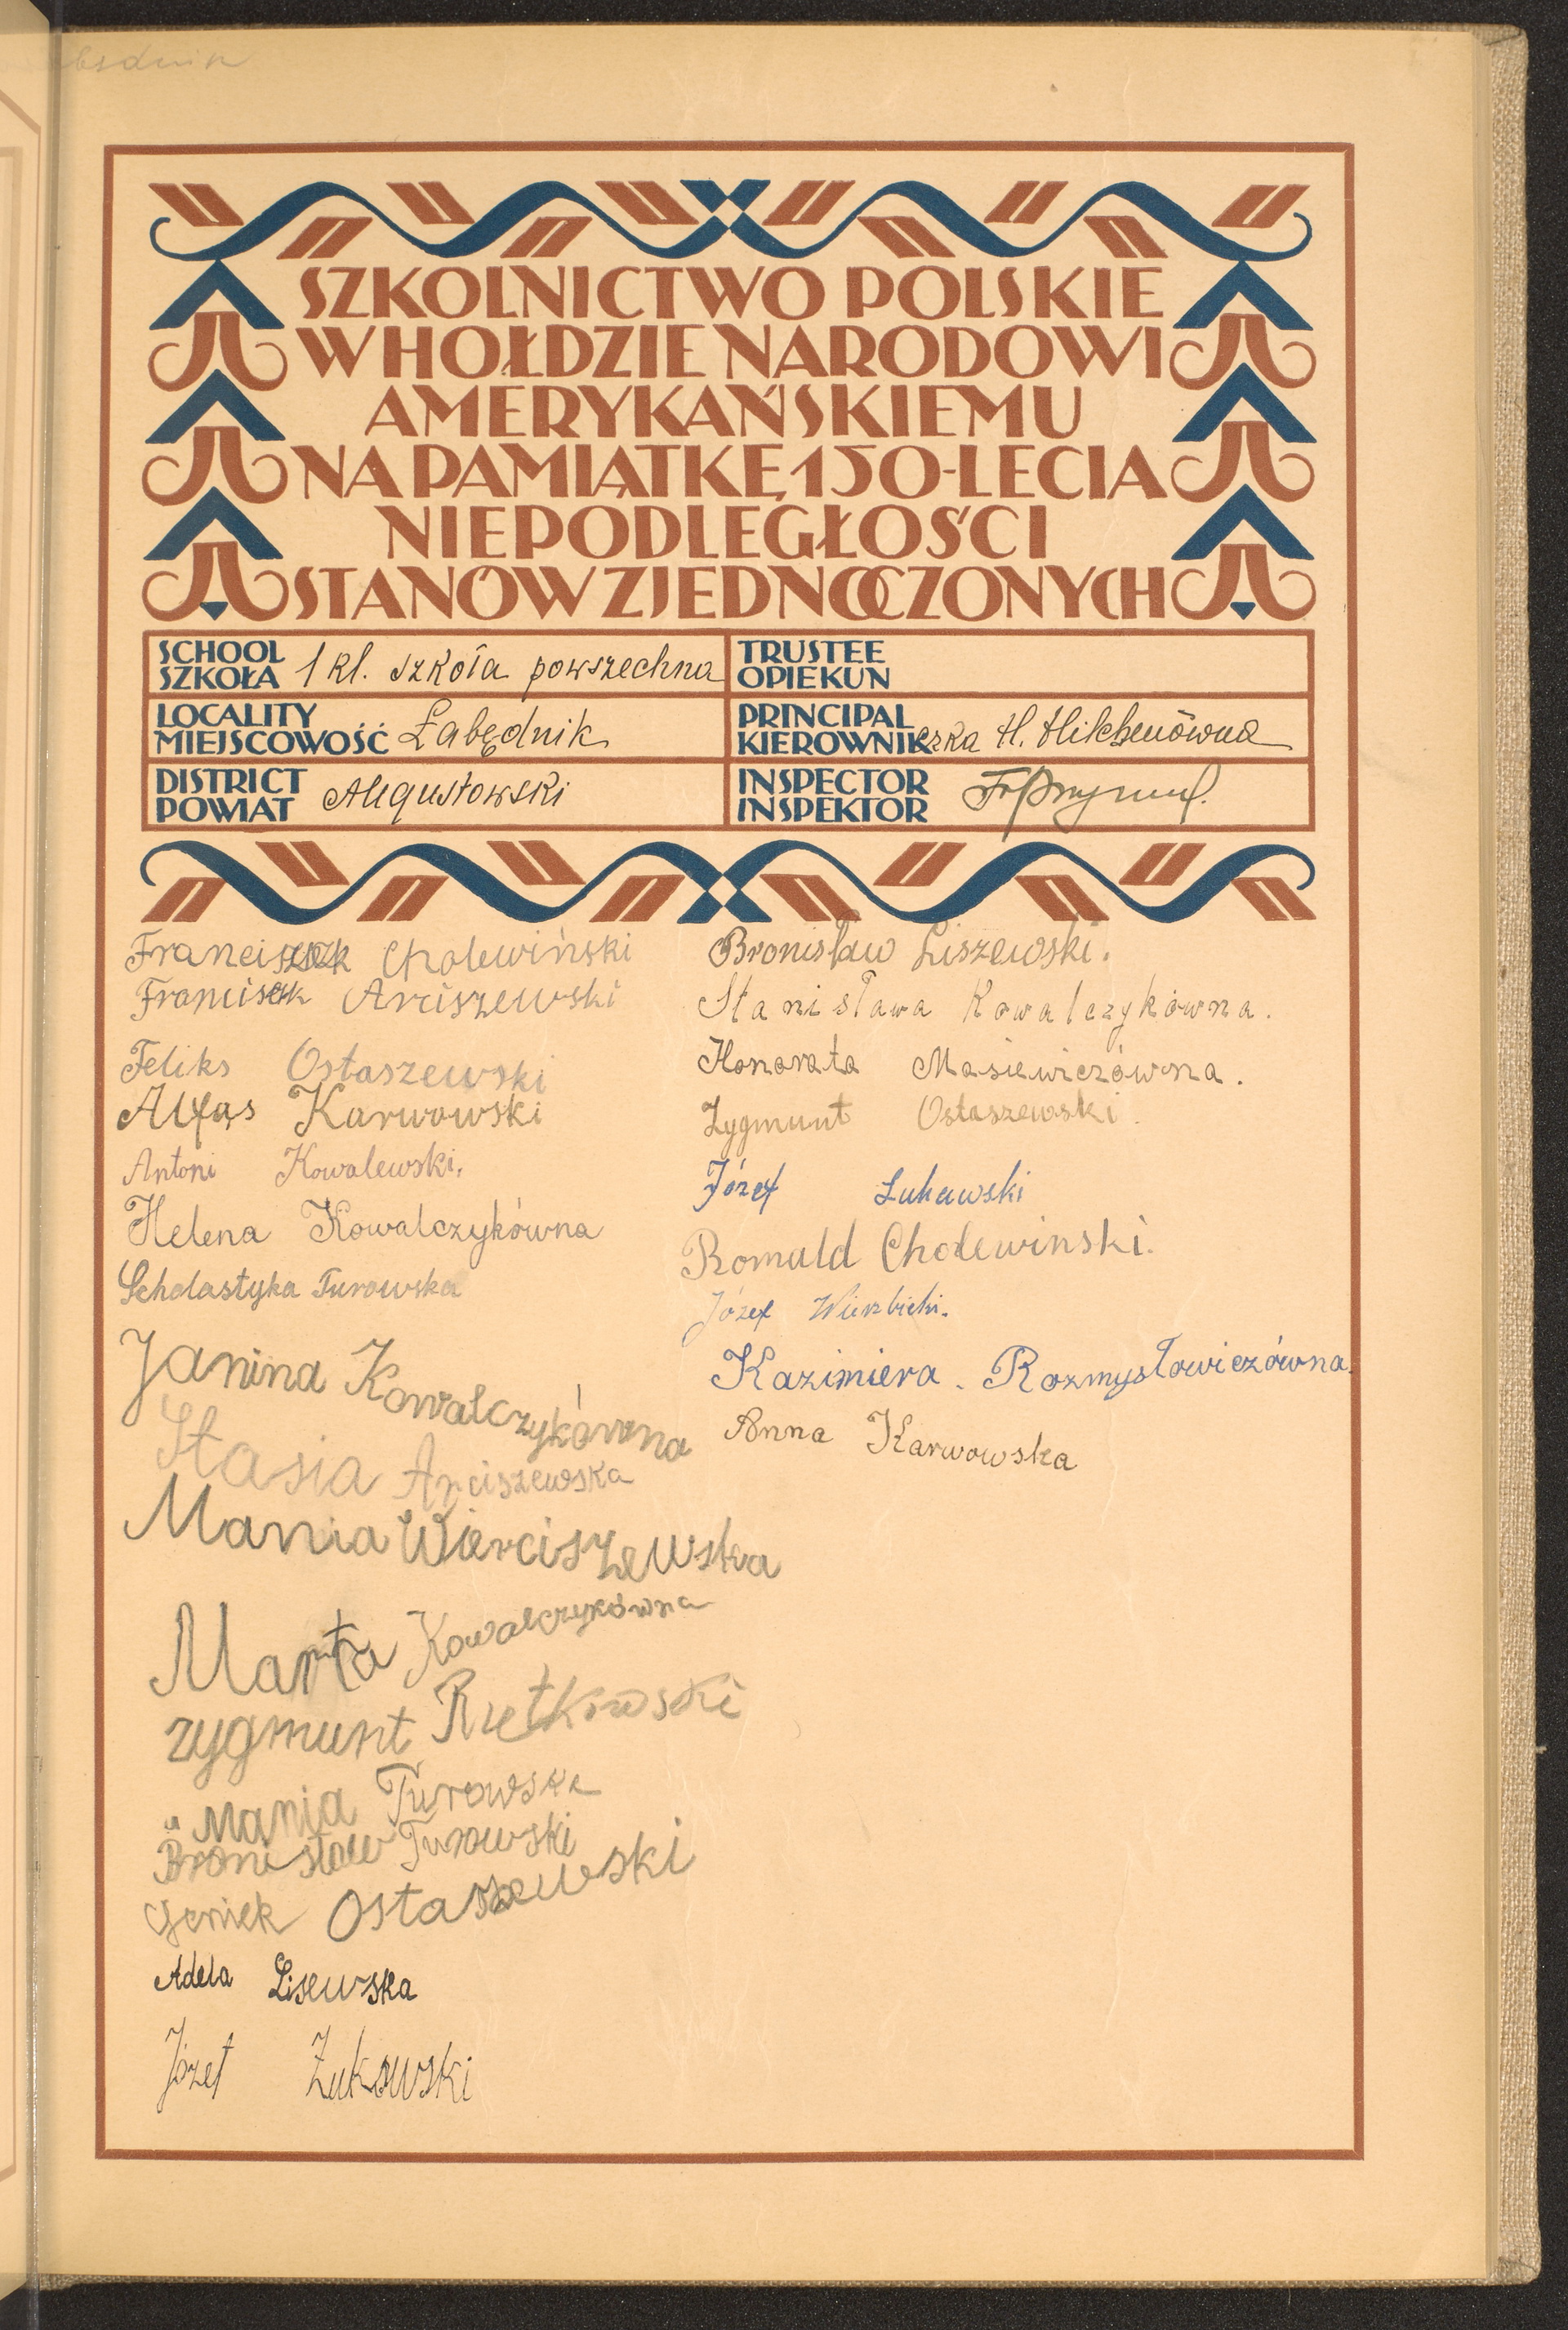 SZKOLNICTWO POLSKIE
W HOŁDZIE NARODOWI
AMERYKAŃSKIEMU
NA PAMIĄTKĘ 150-LECIA
NIEPODLEGŁOŚCI
STANÓW ZJEDNOCZONYCH
SCHOOL
SZKOŁA 1 kl. szkoła powszechna
TRUSTEE
OPIEKUN
LOCALITY
MIEJSCOWOŚĆ Łabędnik
PRINCIPAL
KIEROWNIKczka H.
DISTRICT
POWIAT Augustowski
INSPECTOR
INSPEKTOR
Franciszek Cholewiński
Franciszek Arciszewski
Feliks Ostaszewski
Karwowski
Antoni Kowalewski.
Helena Kowalczykówna
Scholastyka Turowska
Janina Kowalczykówna
Stasia Arciszewska
Mania Wierciszewska
Marta Kowalczykówna
zygmunt
Mania Turowska
Bronisław Turowski
Geniek Ostaszewski
Adela Lisewska
Józef Żukowski
Bronisław Liszewski.
Stanisława Kowalczykówna.
Honorata Masiewiczówna.
Zygmunt Ostaszewski.
Józef
Romuld Cholewinski.
Józef Wierzbicki.
Kazimiera. Rozmysłowiczówna.
Anna Karwowska